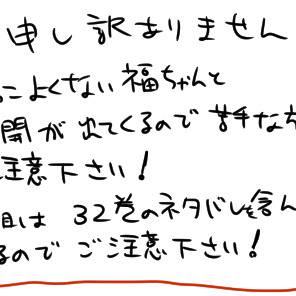 申し訳ありません
こよくない福ちゃんと
開が出てくるので苦手な方
注意下さい!
目は 32巻のネタバレを含ん
るので ご注意下さい!